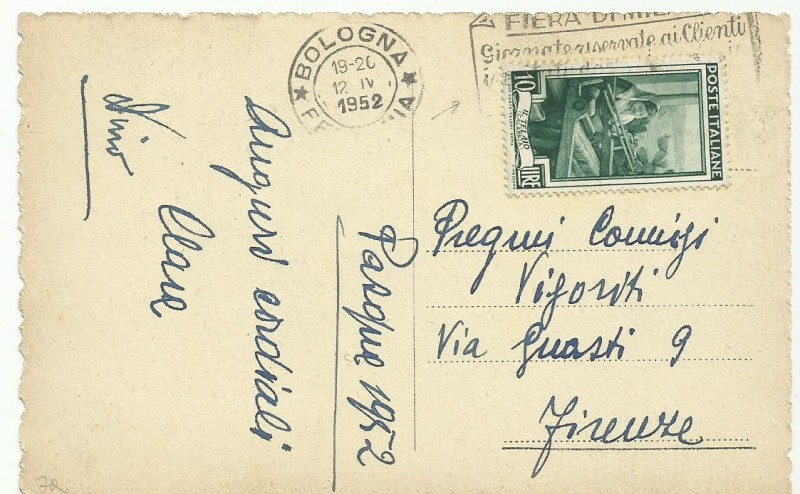 BOLOGNA
19-20
12 IV
1952
FIERA DI MIL
Giornate riservate ai Clienti
POSTE ITALIANE
10
LIRE
IL TELAIO
Auguri cordiali
Clara
Nino
Pasqua 1952
Pregmi Coniugi
Vigoriti
Via Guasti 9
Firenze